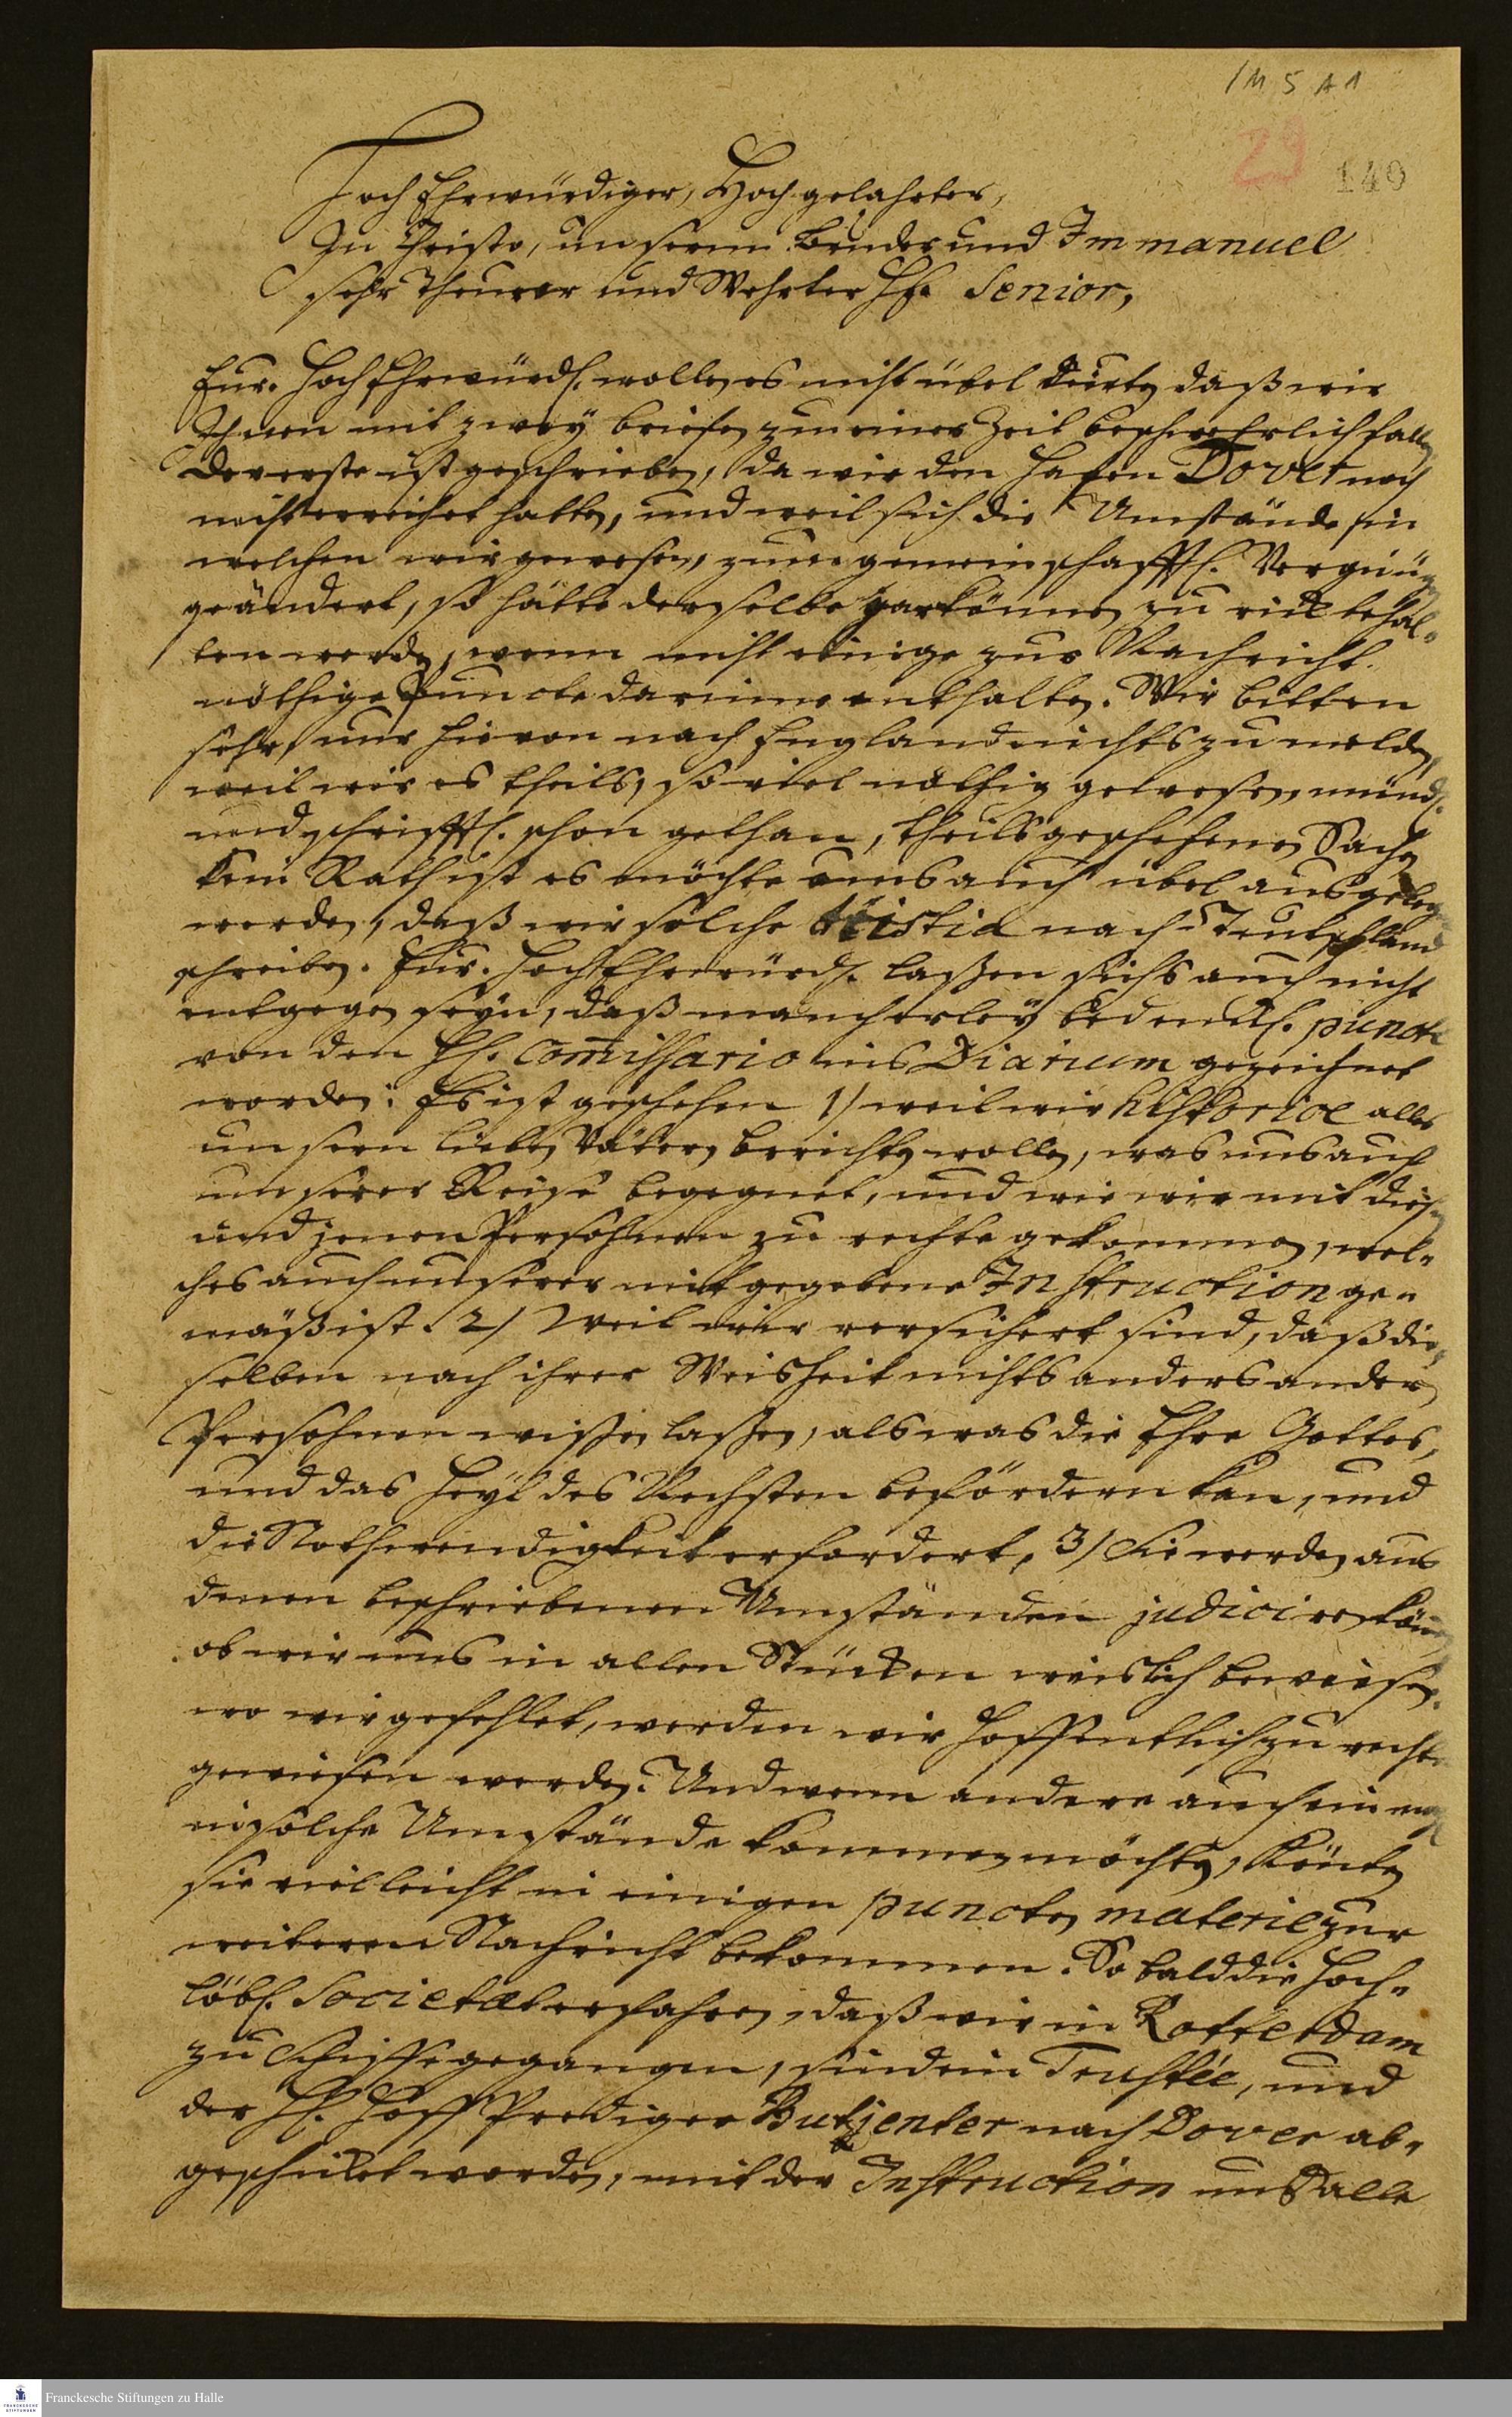 1M 5 A 1
29 140
HochEhrwürdiger, Hochgelahrter,
In Christo, unserm Bruder und Immanuel
sehr Theurer und Wehrter HE. Senior,
Eur. HochEhrwürd. wollen es nicht übel deuten daß wir
Ihnen mit zwey briefen zu einer Zeit beschwerlich fallen
Der erste ist geschrieben, da wir den Hafen Dover noch
nicht erreichet hatten, und weil sich die Umstände in
welchen wir gewesen, zum gemeinschafftl. Vergnügen
geändert, so hätte derselbe gar können zurück behal-
ten werden, wenn nicht einige zur Nachricht
nöthige Puncte darinne enthalten. Wir bitten
sehr, nur hievon nach England nichts zu melden,
weil wir es theils, so viel nöthig gewesen, mündl.
und schrifftl. schon gethan, theils geschehenen Sachen
kein Rath ist es möchte uns auch übel ausgelegt
werden, daß wir solche tristia nach Teutschland
schreiben. Eur. HochEhrwürd. laßen sichs auch nicht
entgegen seyn, daß mancherley bedenckl. puncte
von den H. Commissario ins Diarium gezeichnet
worden: Es ist geschehen 1) weil wir historice alles
unsern lieben Vätern berichten wollen, was uns auf
unserer Reise begegnet, und wie wir mit diesen
und jenen Persohnen zu rechte gekommen, wel-
ches auch unserer mitgegebene Instruction ge-
mäß ist. 2) Weil wir versichert sind, daß die-
selben nach ihrer Weisheit nichts anders andern
Persohnen wißen laßen, als was die Ehre Gottes,
und das Heyl des Nechsten befördern kan, und
die Nothwendigkeit erfordert, 3) Sie werden aus
denen beschriebenen Umständen judiciren können
ob wir uns in allen Stücken weislich bewiesen.
wo wir gefehlet, werden wir hoffentlich zu rechte
gewiesen werden. Und wenn andere auch ein mahl
in solche Umstände kommen möchten, könten
sie vielleicht in einigen puncten materie zur
weiteren Nachricht bekommen. So bald die Hoch-
löbl. Societæt erfahren, daß wir in Rotterdam
zu Schiffe gegangen, sind ein Trustée, und
der H. Hoff Prediger Butjenter nach Dover ab-
geschicket worden, mit der Instruction uns alle
Franckesche Stiftungen zu Halle